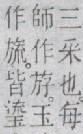 三采也。每
師作斿。玉
作旒。皆瑬